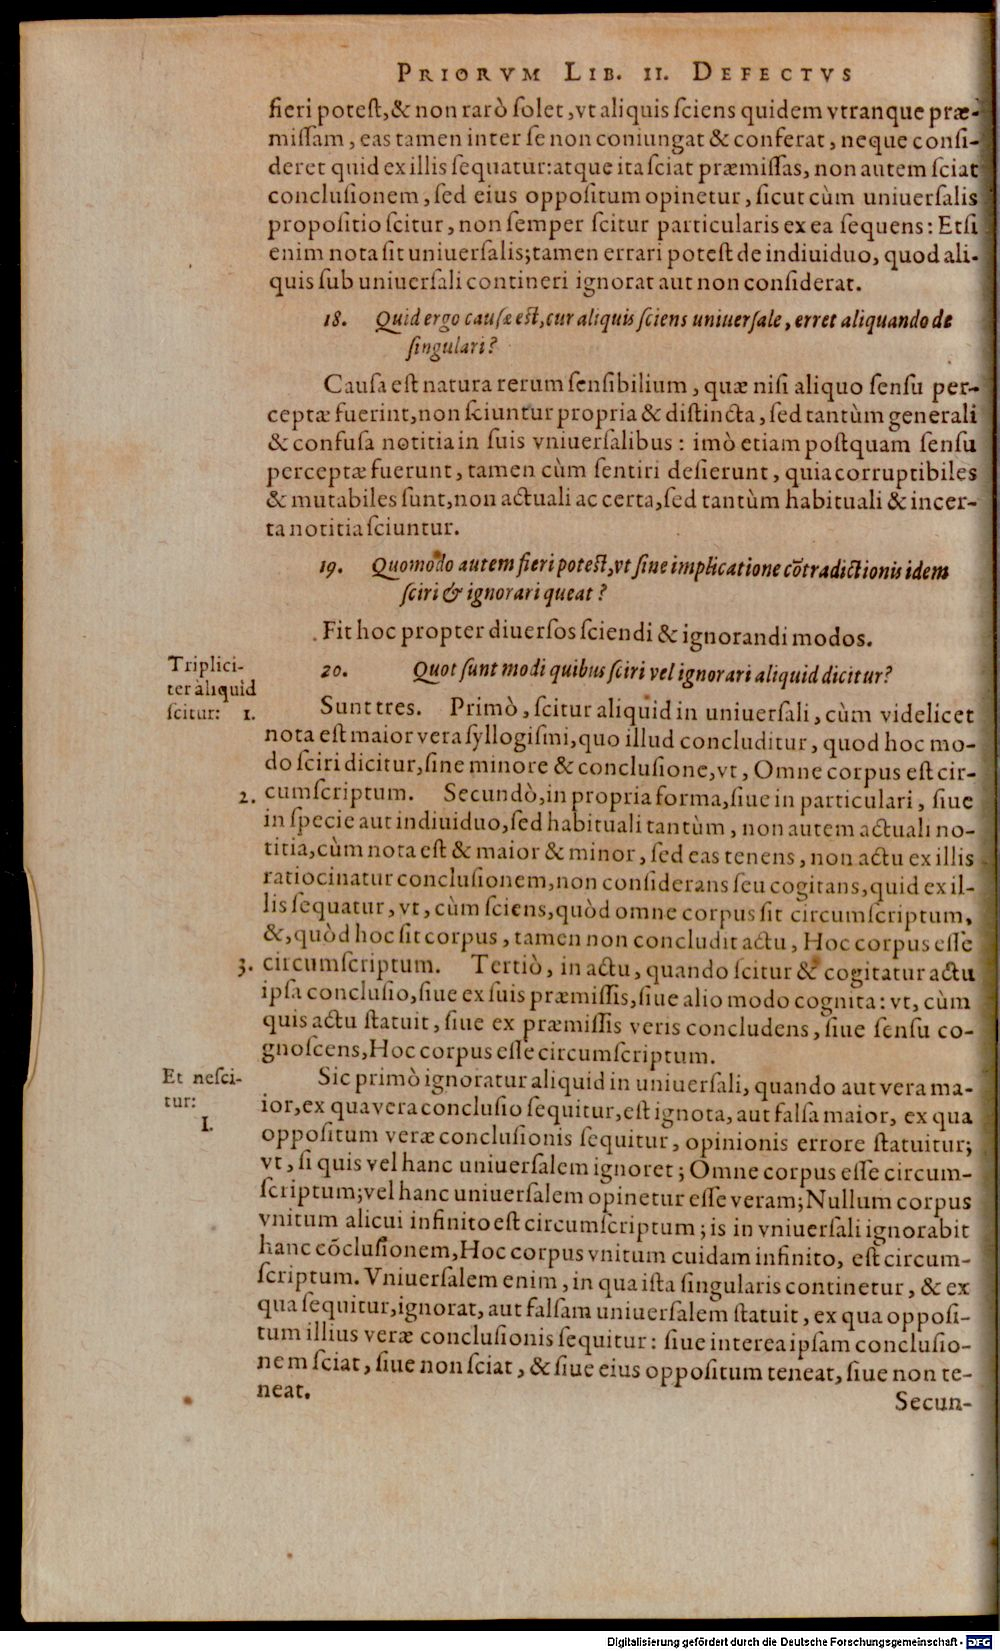 PRIORVM LIB. II. DEFECTVS
fieri poteſt, & non rarò ſolet, vt aliquis ſciens quidem vtranque præ-
miſſam, eas tamen inter ſe non coniungat & conferat, neque conſi-
deret quid ex illis ſequatur: atque ita ſciat præmiſſas, non autem ſciat
concluſionem, ſed eius oppoſitum opinetur, ſicut cùm uniuerſalis
propoſitio ſcitur, non ſemper ſcitur particularis ex ea ſequens: Etſi
enim nota ſit uniuerſalis; tamen errari poteſt de indiuiduo, quod ali-
quis ſub uniuerſali contineri ignorat aut non conſiderat.
18. Quid ergo cauſæ eſt, cur aliquis ſciens uniuerſale, erret aliquando de
ſingulari?
Cauſa eſt natura rerum ſenſibilium, quæ niſi aliquo ſenſu per-
ceptæ fuerint, non ſciuntur propria & diſtincta, ſed tantùm generali
& confuſa notitia in ſuis vniuerſalibus: imò etiam poſtquam ſenſu
perceptæ fuerunt, tamen cùm ſentiri deſierunt, quia corruptibiles
& mutabiles ſunt, non actuali ac certa, ſed tantùm habituali & incer-
ta notitia ſciuntur.
19. Quomodo autem fieri poteſt, vt ſine implicatione cõtradictionis idem
ſciri & ignorari queat?
Fit hoc propter diuerſos ſciendi & ignorandi modos.
Triplici-
ter aliquid
ſcitur: 1.
20. Quot ſunt modi quibus ſciri vel ignorari aliquid dicitur?
Sunt tres. Primò, ſcitur aliquid in uniuerſali, cùm videlicet
nota eſt maior vera ſyllogiſmi, quo illud concluditur, quod hoc mo-
do ſciri dicitur, ſine minore & concluſione, vt, Omne corpus eſt cir-
2. cumſcriptum. Secundò, in propria forma, ſiue in particulari, ſiue
in ſpecie aut indiuiduo, ſed habituali tantùm, non autem actuali no-
titia, cùm nota eſt & maior & minor, ſed eas tenens, non actu ex illis
ratiocinatur concluſionem, non conſiderans ſeu cogitans, quid ex il-
lis ſequatur, vt, cùm ſciens, quòd omne corpus ſit circumſcriptum,
&, quòd hoc ſit corpus, tamen non concludit actu, Hoc corpus eſſe
3. circumſcriptum. Tertiò, in actu, quando ſcitur & cogitatur actu
ipſa concluſio, ſiue ex ſuis præmiſſis, ſiue alio modo cognita: vt, cùm
quis actu ſtatuit, ſiue ex præmiſſis veris concludens, ſiue ſenſu co-
gnoſcens, Hoc corpus eſſe circumſcriptum.
Et neſci-
tur:
1.
Sic primò ignoratur aliquid in uniuerſali, quando aut vera ma-
ior, ex qua vera concluſio ſequitur, eſt ignota, aut falſa maior, ex qua
oppoſitum veræ concluſionis ſequitur, opinionis errore ſtatuitur;
vt, ſi quis vel hanc uniuerſalem ignoret; Omne corpus eſſe circum-
ſcriptum; vel hanc uniuerſalem opinetur eſſe veram; Nullum corpus
vnitum alicui infinito eſt circumſcriptum; is in vniuerſali ignorabit
hanc cõcluſionem, Hoc corpus vnitum cuidam infinito, eſt circum-
ſcriptum. Vniuerſalem enim, in qua iſta ſingularis continetur, & ex
qua ſequitur, ignorat, aut falſam uniuerſalem ſtatuit, ex qua oppoſi-
tum illius veræ concluſionis ſequitur: ſiue interea ipſam concluſio-
nem ſciat, ſiue non ſciat, & ſiue eius oppoſitum teneat, ſiue non te-
neat.
Secun-
Digitalisierung gefördert durch die Deutsche Forschungsgemeinschaft - DFG